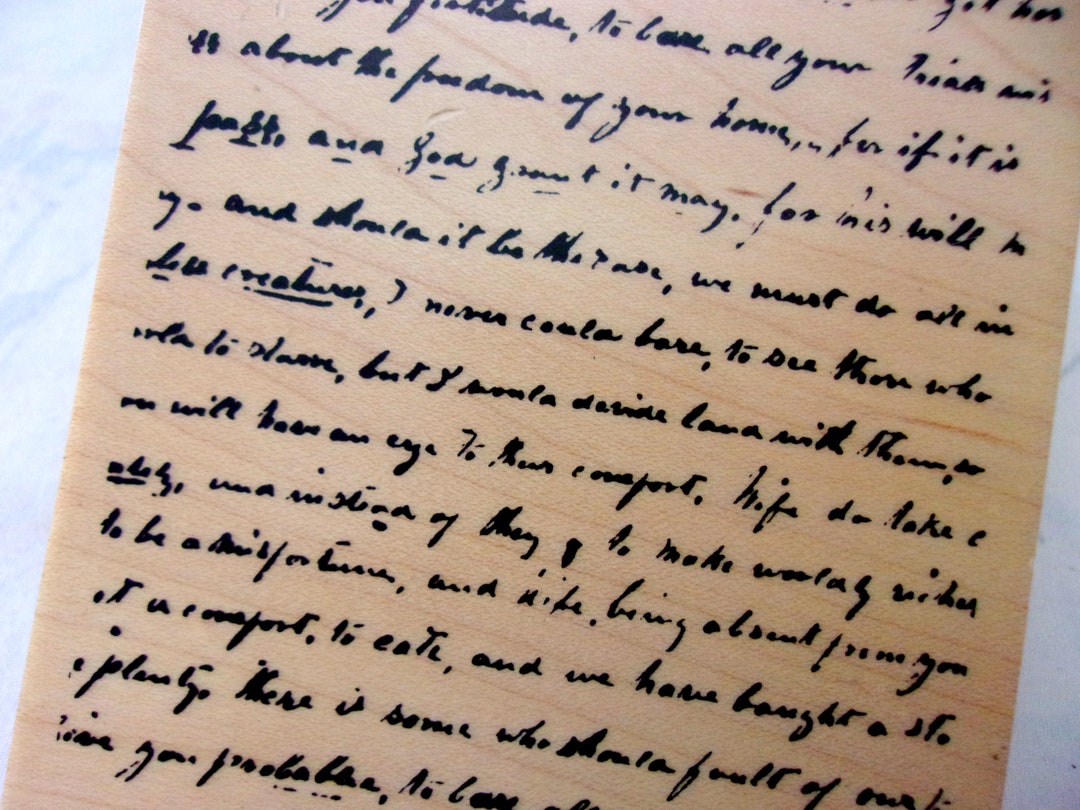 you gratitude, to bare all your trials
about the freedom of your home, for if it is
past, and God grant it may, for his will
and should it be the case, we must do all in
creatures, I never could bare, to see those who
to starve, but I would devide land with them, so
will have an eye to their comfort. Wife do take
and instead of they to make worldly richer
to be a misfortune, and wife, being absent from you
it is comfort, to eate, and we have bought a sto
plenty, there is some who should fault of
you probable, to bare